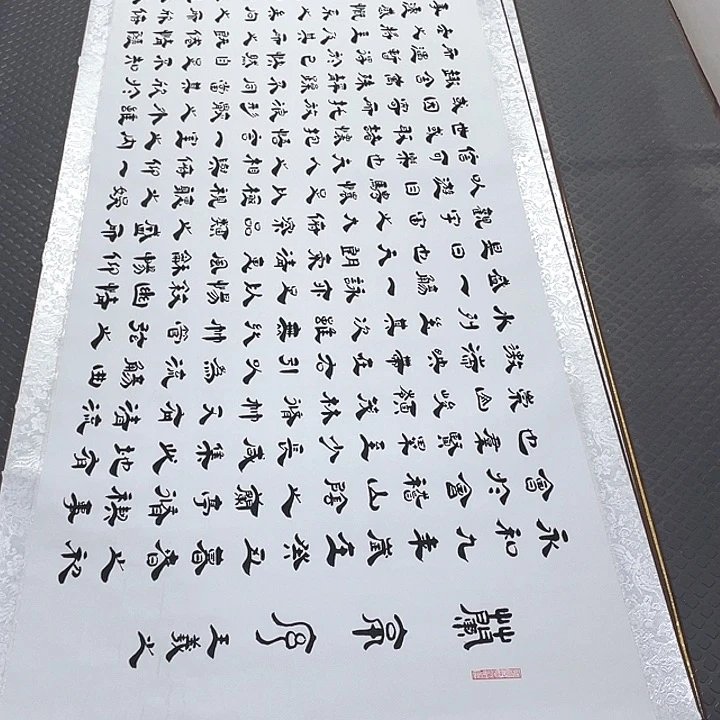 蘭亭序 王羲之
永和九年歲在癸丑暮春之初
會於會稽山陰之蘭亭脩禊事
也羣賢畢至少長咸集此地有
崇山峻領茂林脩竹又有清流
激湍映帶左右引以為流觴曲
水列坐其次雖無絲竹管弦之
盛一觴一詠亦足以暢敘幽情
是日也天朗氣清惠風和暢仰
觀宇宙之大俯察品類之盛所
以遊目騁懷足以極視聽之娛
信可樂也夫人之相與俯仰一
世或取諸懷抱悟言一室之內
或因寄所託放浪形骸之外雖
趣舍萬殊靜躁不同當其欣於